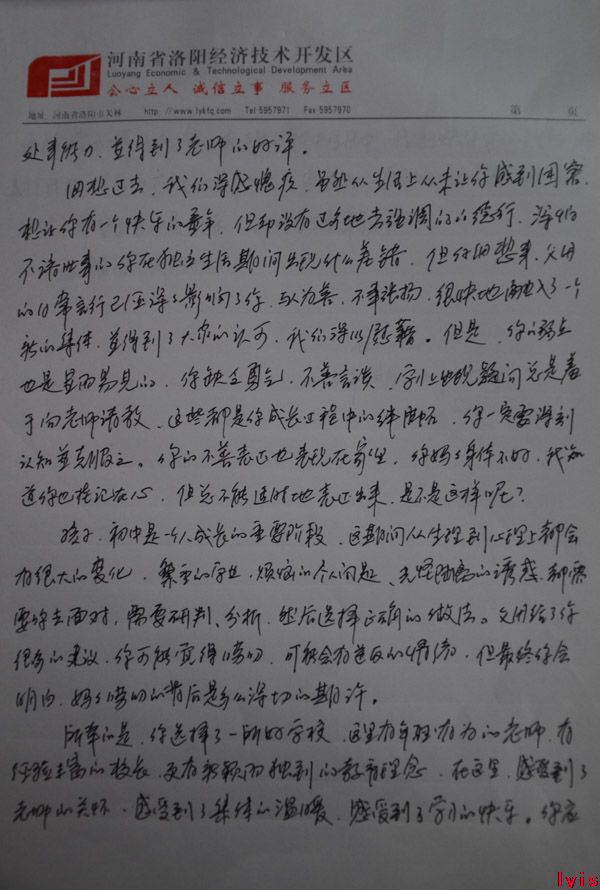 河南省洛阳经济技术开发区
Luoyang Economic & Technological Development Area
会心立人 诚信立事 服务立区
地址 河南省洛阳市关林 http://www.lykfq.com Tel 5957971 Fax 5957970 第 页
处事能力,并得到了老师的好评。
回想过去,我们深感愧疚,虽然从生活上从未让你感到困窘,
想让你有一个快乐的童年,但却没有过多地去强调你的德行,深怕
不谙世事的你在独立生活期间出现什么差错,但仔细想来,父母
的日常言行已经深深影响了你,与人为善,不事张扬,很快地融入了一个
新的集体,并得到了大家的认可,我们深以慰藉。但是,你的弱点
也是显而易见的,你缺乏勇气,不善言谈,学习上出现疑问总是羞
于向老师请教,这些都是你成长过程中的绊脚石,你一定要深刻
认知并克服之。你的不善表达也表现在家里,你妈妈身体不好,我知
道你也挂记在心,但总不能适时地表达出来,是不是这样呢?
孩子,初中是一个人成长的重要阶段,这期间从生理到心理上都会
有很大的变化,繁重的学业,烦恼的个人问题、光怪陆离的诱惑,都需
要你去面对,需要研判、分析,然后选择正确的做法。父母给了你
很多的建议,你可能觉得唠叨,可能会有逆反的情绪,但最终你会
明白,妈妈唠叨的背后是多么深切的期许。
所幸的是,你选择了一所好学校,这里有年轻有为的老师,有
经验丰富的校长,更有新颖而独到的教育理念,在这里,感受到了
老师的关怀,感受到了集体的温暖,感受到了学习的快乐。你应
lyis